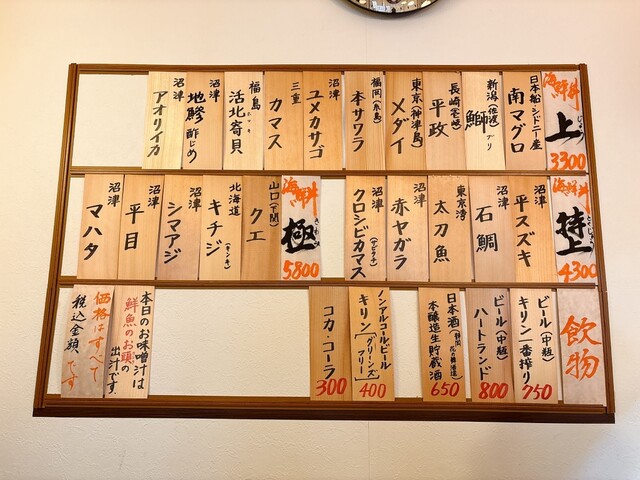 海鮮丼
上
じょう
3300
日本船シドニー産
南マグロ
新潟(佐渡)
鰤
ブリ
長崎(壱岐)
平政
東京(神津島)
メダイ
福岡(糸島)
本サワラ
沼津
ユメカサゴ
三重
カマス
福島
活北寄貝
ホッキ
沼津
地鯵
酢じめ
沼津
アオリイカ
海鮮丼
特上
とくじょう
4300
沼津
平スズキ
沼津
石鯛
東京湾
太刀魚
沼津
赤ヤガラ
沼津
クロシビカマス
海鮮丼
極
きわみ
5800
山口(下関)
クエ
北海道
キチジ
(キンキ)
沼津
シマアジ
沼津
平目
沼津
マハタ
飲物
ビール(中瓶)
キリン一番搾り
750
ビール(中瓶)
ハートランド
800
日本酒
本醸造生貯蔵酒
650
ノンアルコールビール
キリン[グリーンズフリー]
400
コカ・コーラ
300
本日のお味噌汁は
鮮魚のお頭の
出汁です。
価格はすべて
税込金額です